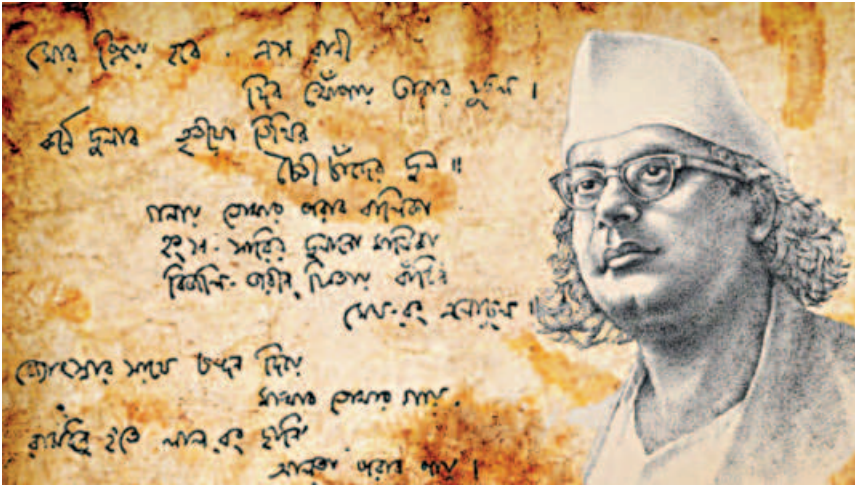 মোর প্রিয়া হবে . এস রাণী
দিব খোঁপায় তারার ফুল ।
কর্ণে দুলাব তৃতীয়া তিথির
চৈতী চাঁদের দুল ॥
গলায় তোমার পরাব বালিকা
হংস - সারির দুলানো মালিকা
বিজলি - জরীন ফিতায় বাঁধিব
মেঘ-রং এলোচুল ॥
জ্যোৎস্নার সাথে চন্দন দিয়ে
মাখাব তোমার গায় .
রামধনু হতে লাল রং ছানি
আলতা পরাব পায় ।